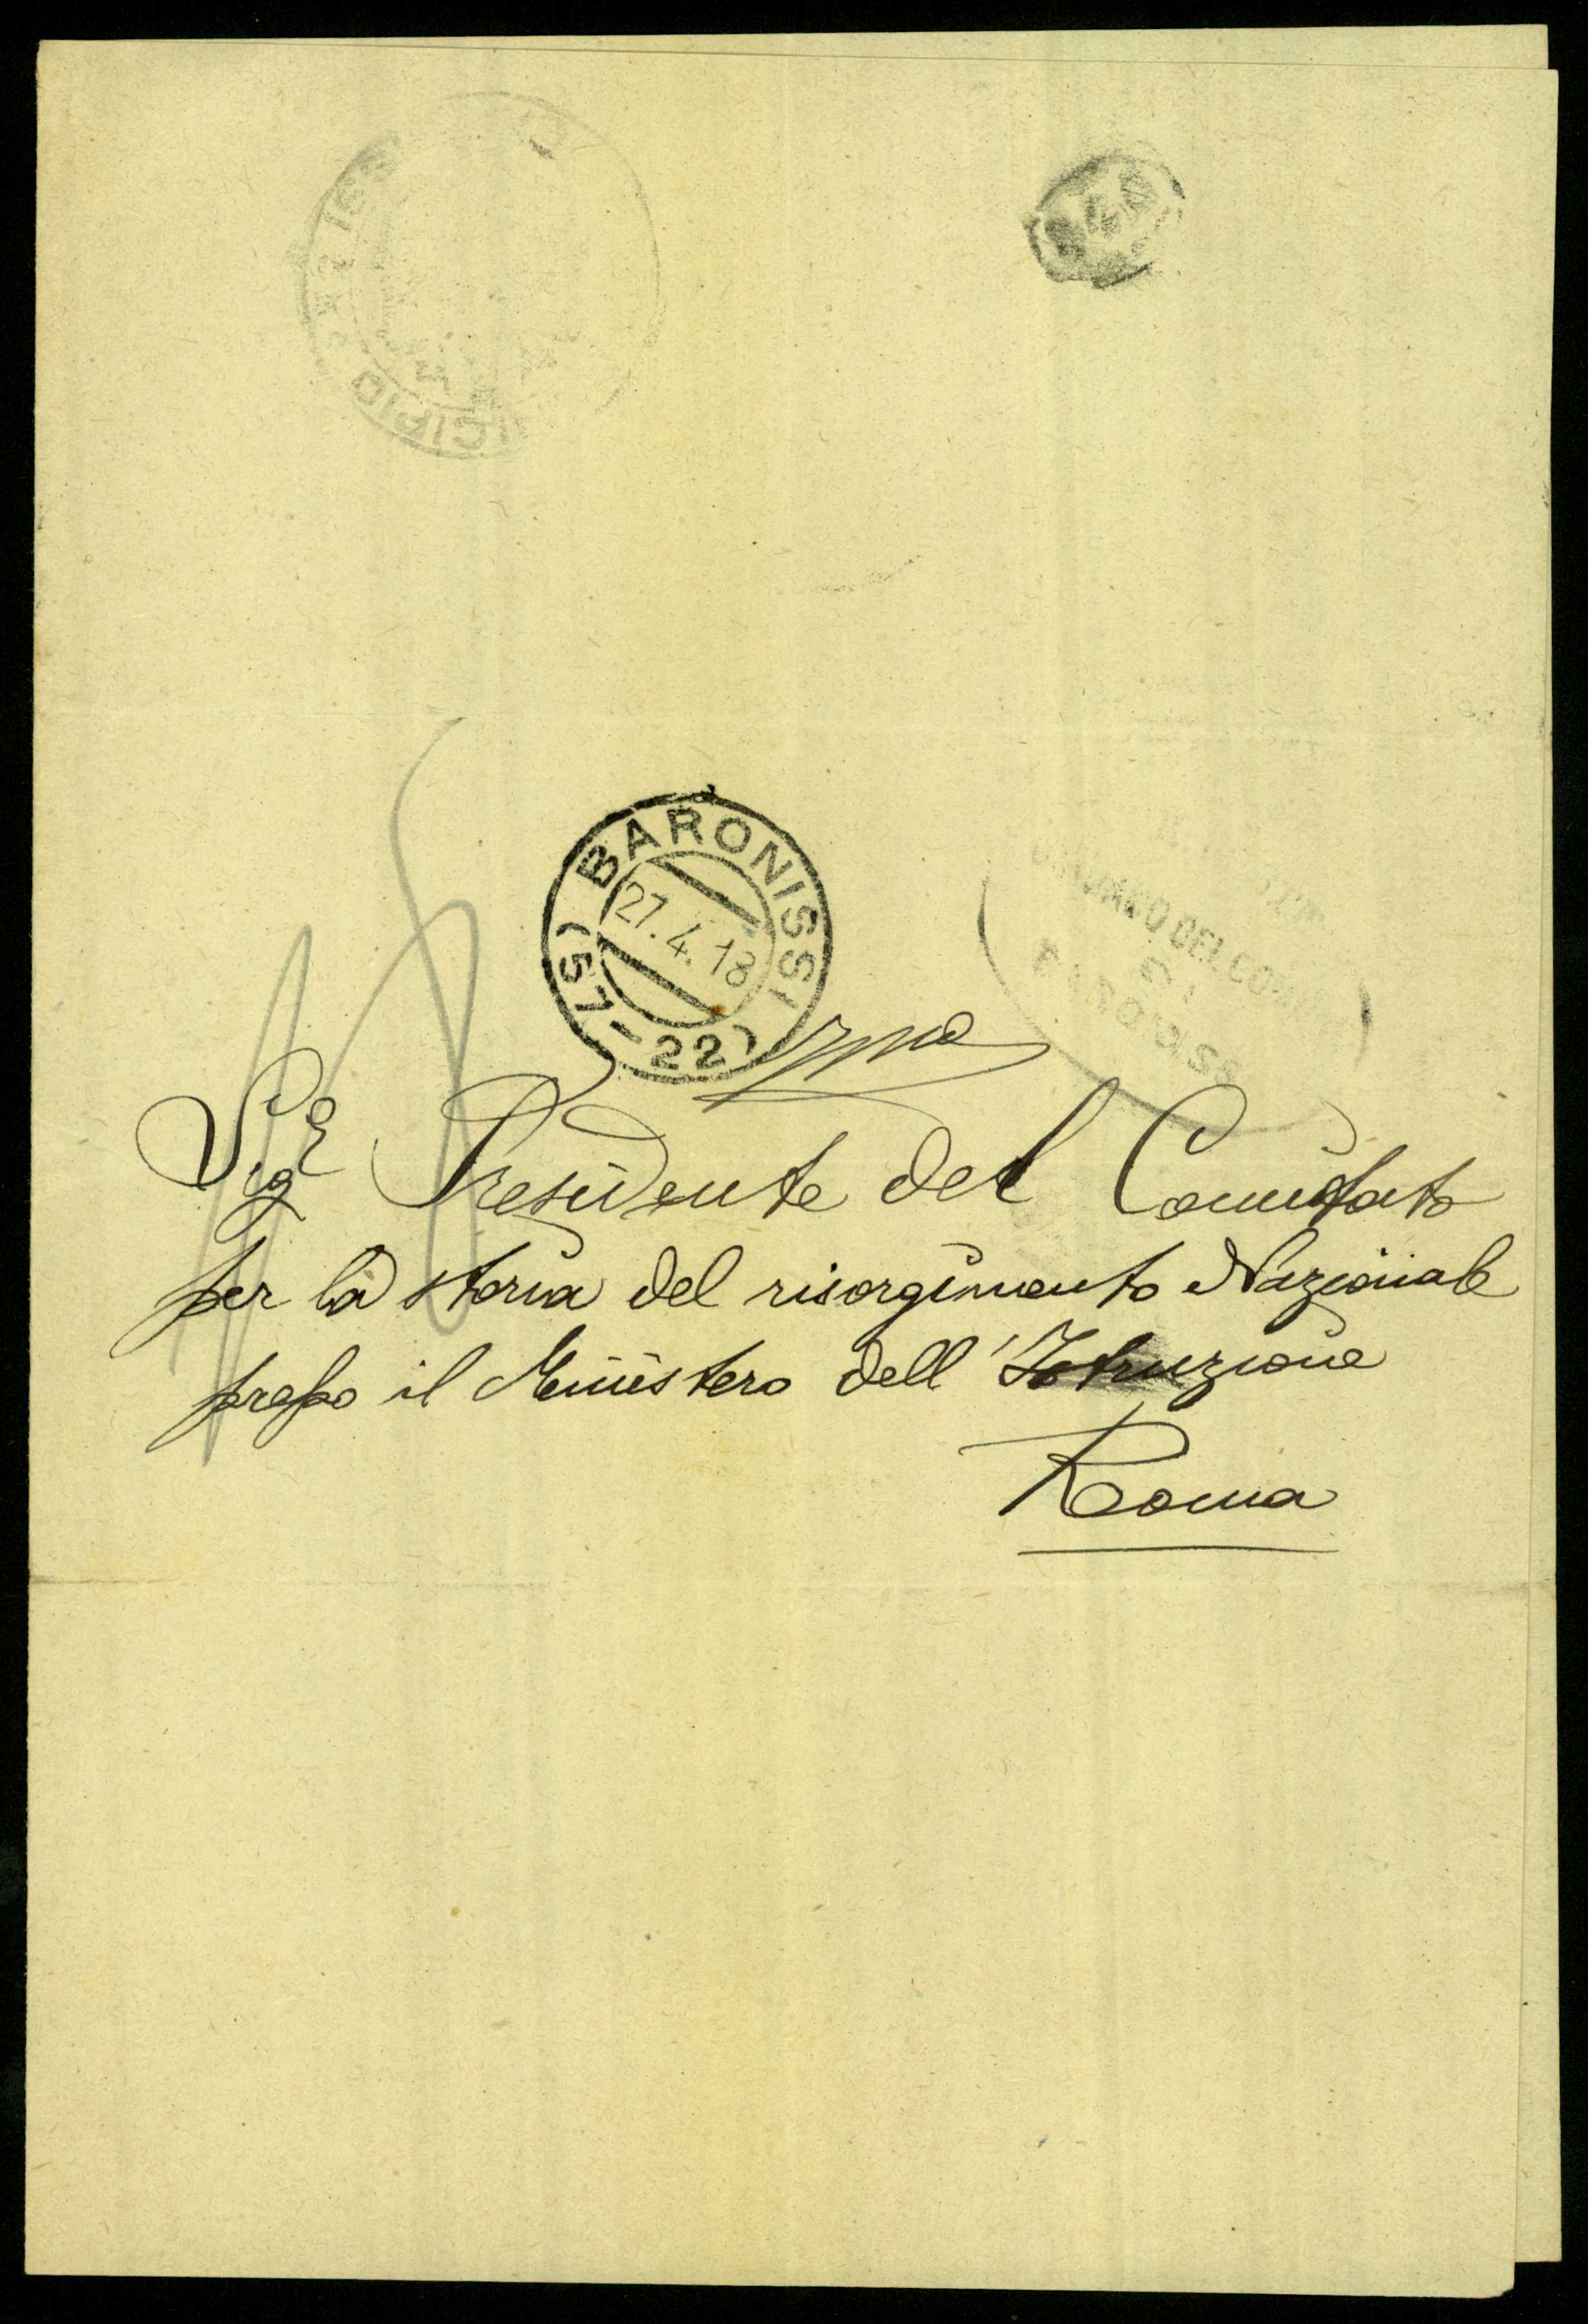 BARONISSI
27.4.18
(57-22)
Sig.r Presidente del Comitato
per la storia del risorgimento Nazionale
presso il Ministero dell'Istruzione
Roma